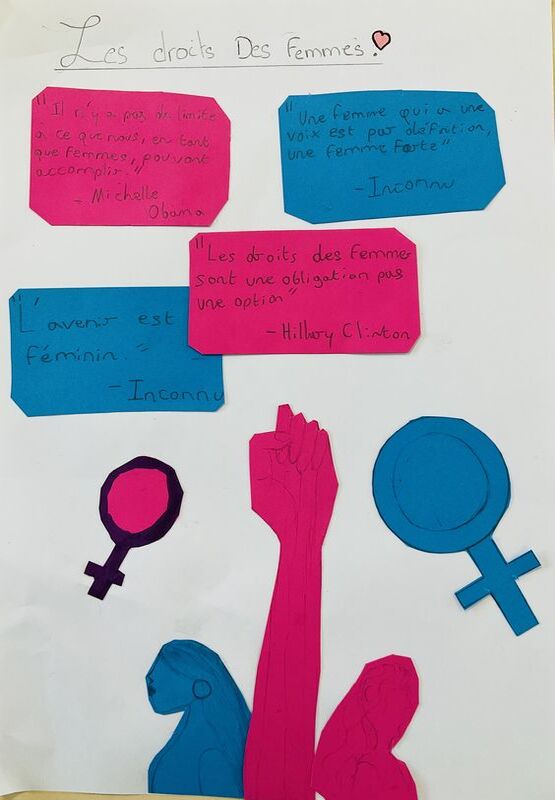 Les droits Des Femmes!
"Il n'y a pas de limite
à ce que nous, en tant
que femmes, pouvons
accomplir."
- Michelle
Obama
"Une femme qui a une
voix est par définition,
une femme forte"
- Inconnu
"Les droits des femmes
sont une obligation pas
une option"
- Hillary Clinton
"L'avenir est
féminin."
- Inconnu